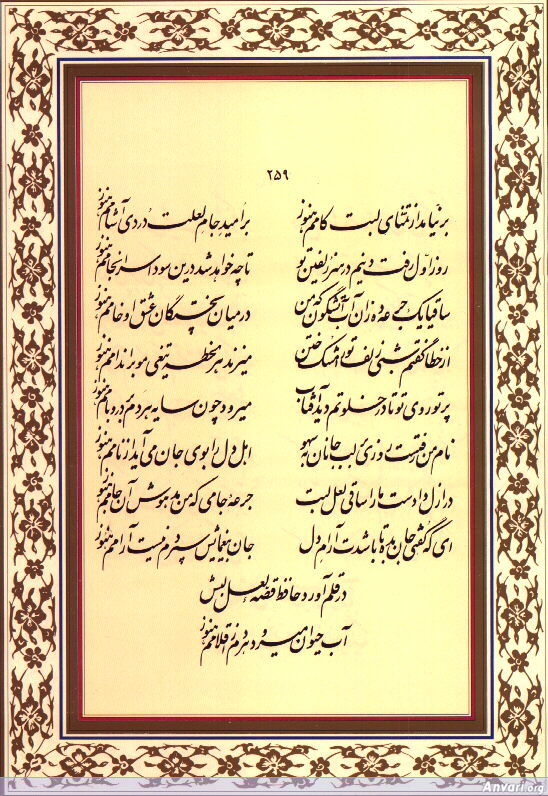 ۲۵۹
برنیامد از تمنای لبت کامم هنوز بر امید جام لعلت دردی آشامم هنوز
روز اول رفت دینم در سر زلفین تو تا چه خواهد شد درین سودا سرانجامم هنوز
ساقیا یک جرعه ده زان آب آتشگون که من در میان پختگان عشق او خامم هنوز
از خطا گفتم شبی زلف ترا مشک ختن میزند هر لحظه تیغی مو بر اندامم هنوز
پرتو روی تو تا در خلوتم دید آفتاب میرود چون سایه هر دم بر در و بامم هنوز
نام من رفتست روزی بر لب جانان به سهو اهل دل را بوی جان می آید از نامم هنوز
در ازل دادست ما را ساقی لعل لبت جرعه جامی که من مدهوش آن جامم هنوز
ای که گفتی جان بده تا باشدت آرام دل جان بغمهایش سپردم نیست آرامم هنوز
در قلم آورد حافظ قصه لعل لبش
آب حیوان میرود هر دم ز اقلامم هنوز
Anvari.org